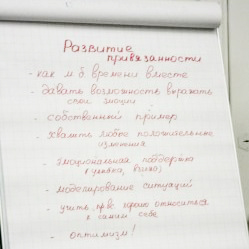 Развитие
привязанности
- как м.б. времени вместе
- давать возможность выражать
свои эмоции
- собственный пример
- хвалить любые положительные
изменения
- эмоциональная поддержка
(улыбка,
- моделирование ситуаций
- учить хорошо относиться
к самим себе
- оптимизм!